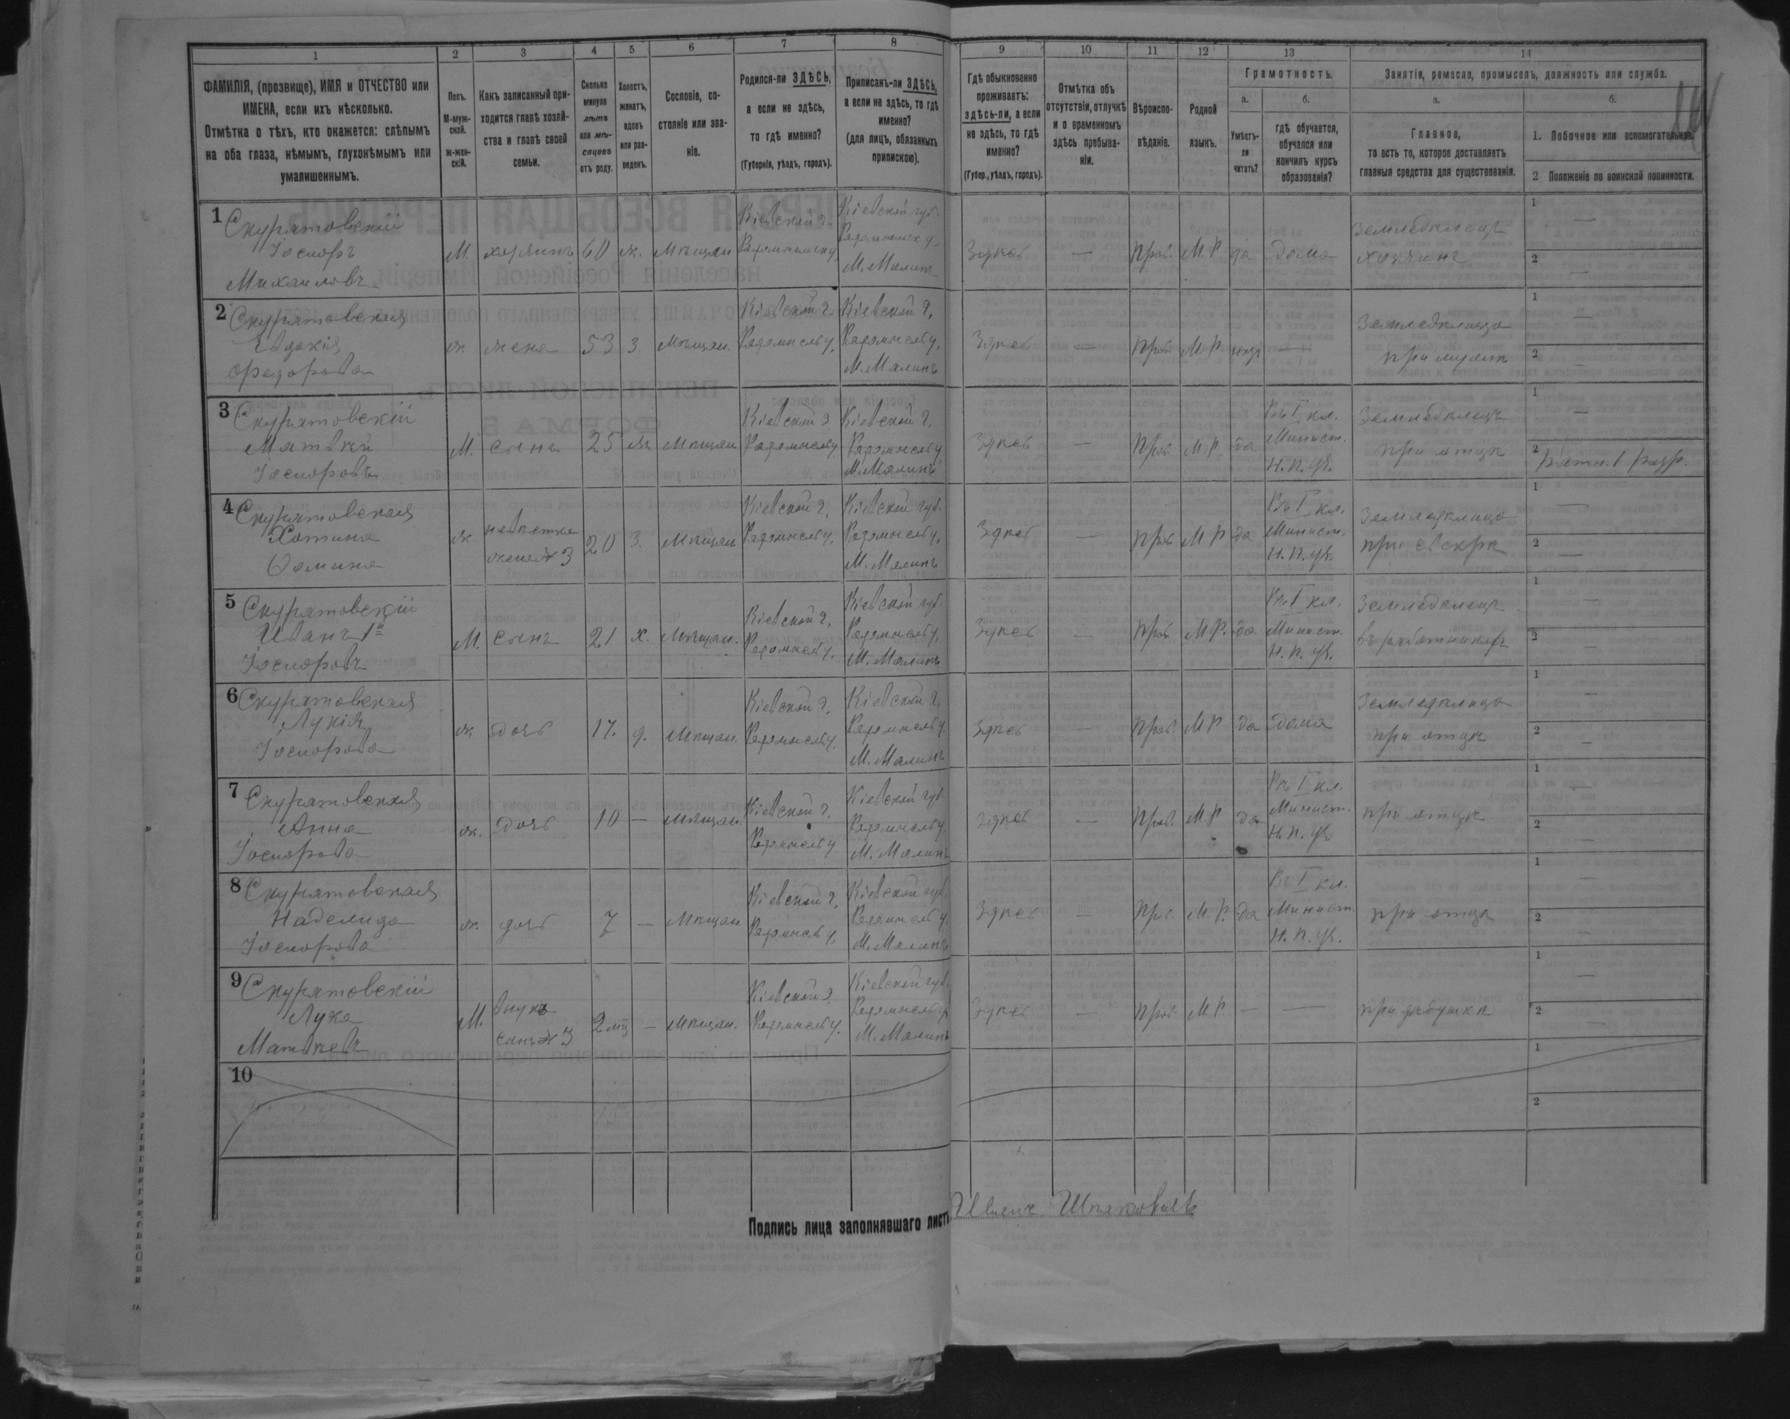 1 2 3 4 5 6 7 8 9 10 11 12 13 14
ФАМИЛІЯ, (прозвище), ИМЯ и ОТЧЕСТВО или
ИМЕНА, если ихъ нѣсколько.
Отмѣтка о тѣхъ, кто окажется: слѣпымъ
на оба глаза, нѣмымъ, глухонѣмымъ или
умалишеннымъ.
Полъ.
М-муж-
ской.
ж-жен-
скій.
Какъ записанный при-
ходится главѣ хозяй-
ства и главѣ своей
семьи.
Сколько
минуло
лѣтъ
или мѣ-
сяцевъ
отъ роду.
Холостъ,
женатъ,
вдовъ
или раз-
веденъ.
Сословіе, со-
стояніе или зва-
ніе.
Родился-ли ЗДѢСЬ,
а если не здѣсь,
то гдѣ именно?
(Губернія, уѣздъ, городъ).
Приписанъ-ли ЗДѢСЬ,
а если не здѣсь, то гдѣ
именно?
(для лицъ, обязанныхъ
припискою).
Гдѣ обыкновенно
проживаетъ:
здѣсь-ли, а если
не здѣсь, то гдѣ
именно?
(Губер., уѣздъ, городъ).
Отмѣтка объ
отсутствіи, отлучкѣ
и о временномъ
здѣсь пребыва-
ніи.
Вѣроиспо-
вѣданіе.
Родной
языкъ.
Грамотность.
а. б.
Умѣетъ-
ли
читать?
гдѣ обучается,
обучался или
кончилъ курсъ
образованія?
Занятія, ремесло, промыселъ, должность или служба.
а. б.
Главное,
то есть то, которое доставляетъ
главныя средства для существованія.
1. Побочное или вспомогательное.
2 Положеніе по воинской повинности.
1 Скуратовскій
Іосифъ
Михаиловъ
М. хозяинъ 60 ж. мѣщан
Кіевской г.
Радомысльу.
Кіевской губ.
Радомысльу.
М. Малинъ
Здѣсь — Прав. М.Р. да дома
Земледѣлецъ
хозяинъ
1 —
2 —
2 Скуратовская
Евдокія
Федорова
ж. жена 53 з. мѣщан.
Кіевской г.
Радомысльу.
Кіевской г.
Радомысльу.
М. Малинъ
Здѣсь — Прав. М.Р. —
Земледѣлица
при мужѣ
1 —
2 —
3 Скуратовскій
Матвѣй
Іосифовъ
М. сынъ 25 ж. мѣщан.
Кіевской г
Радомысльу.
Кіевской г.
Радомысльу
М. Малинъ
Здѣсь — Прав. М.Р. да
Въ I кл.
Минист.
Н. П. Уч.
Земледѣлецъ
при отцѣ
1 —
2 Ратн. 1 разр.
4 Скуратовская
Ѳомина
ж. невѣстка
жена № 3
20 з. мѣщан
Кіевской г.
Радомысльу.
Кіевской губ.
Радомысльу.
М. Малинъ
Здѣсь — Прав. М.Р. да
Въ I кл.
Минист.
Н. П. Уч.
Земледѣлица
при свекрѣ
1 —
2 —
5 Скуратовскій
Иванъ 1й
Іосифовъ
М. сынъ 21 х. мѣщан.
Кіевской г.
Радомысльу.
Кіевской губ.
Радомысльу.
М. Малинъ
Здѣсь — Прав. М.Р. да
Въ I кл.
Минист.
Н. П. Уч.
Земледѣлецъ
въ работникахъ
1 —
2 —
6 Скуратовская
Лукія
Іосифова
ж. дочь 17. д. мѣщан.
Кіевской г.
Радомысльу.
Кіевской г.
Радомысльу
М. Малинъ
Здѣсь — Прав. М.Р. да дома
Земледѣлица
при отцѣ
1 —
2 —
7 Скуратовская
Анна
Іосифова
ж. дочь 10 — мѣщан.
Кіевской г.
Радомысльу
Кіевской губ.
Радомысльу.
М. Малинъ
Здѣсь — Прав. М.Р. да
Въ I кл.
Минист.
Н. П. Уч.
при отцѣ
1 —
2 —
8 Скуратовская
Іосифова
ж. дочь 7 — мѣщан
Кіевской г.
Радомысльу.
Кіевской губ.
Радомысльу.
М. Малинъ
Здѣсь — Прав. М.Р. да
Въ I кл.
Минист.
Н. П. Уч.
при отцѣ
1 —
2 —
9 Скуратовскій
Лука
Матвѣевъ
М. внукъ
сынъ № 3
2 мц — мѣщан.
Кіевской г.
Радомысльу.
Кіевской губ.
Радомысльу.
М. Малинъ
Здѣсь — Прав. М.Р. — —
при дѣдушкѣ
1 —
2 —
10
1
2
Подпись лица заполнявшаго листъ